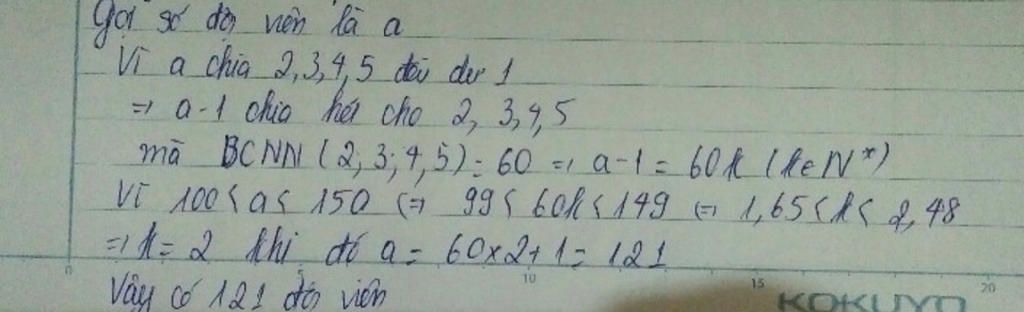 Gọi số đội viên là a
Vì a chia 2,3,4,5 đều dư 1
=> a-1 chia hết cho 2, 3,4,5
mà BCNN (2,3;4,5) = 60 => a-1 = 60k (k∈N*)
Vì 100<a< 150 <=> 99< 60k<149 <=> 1,65<k< 2,48
=> k= 2 khi đó a = 60x2+1= 121
Vậy có 121 đội viên
0 5 10 15 20
KOKUYO